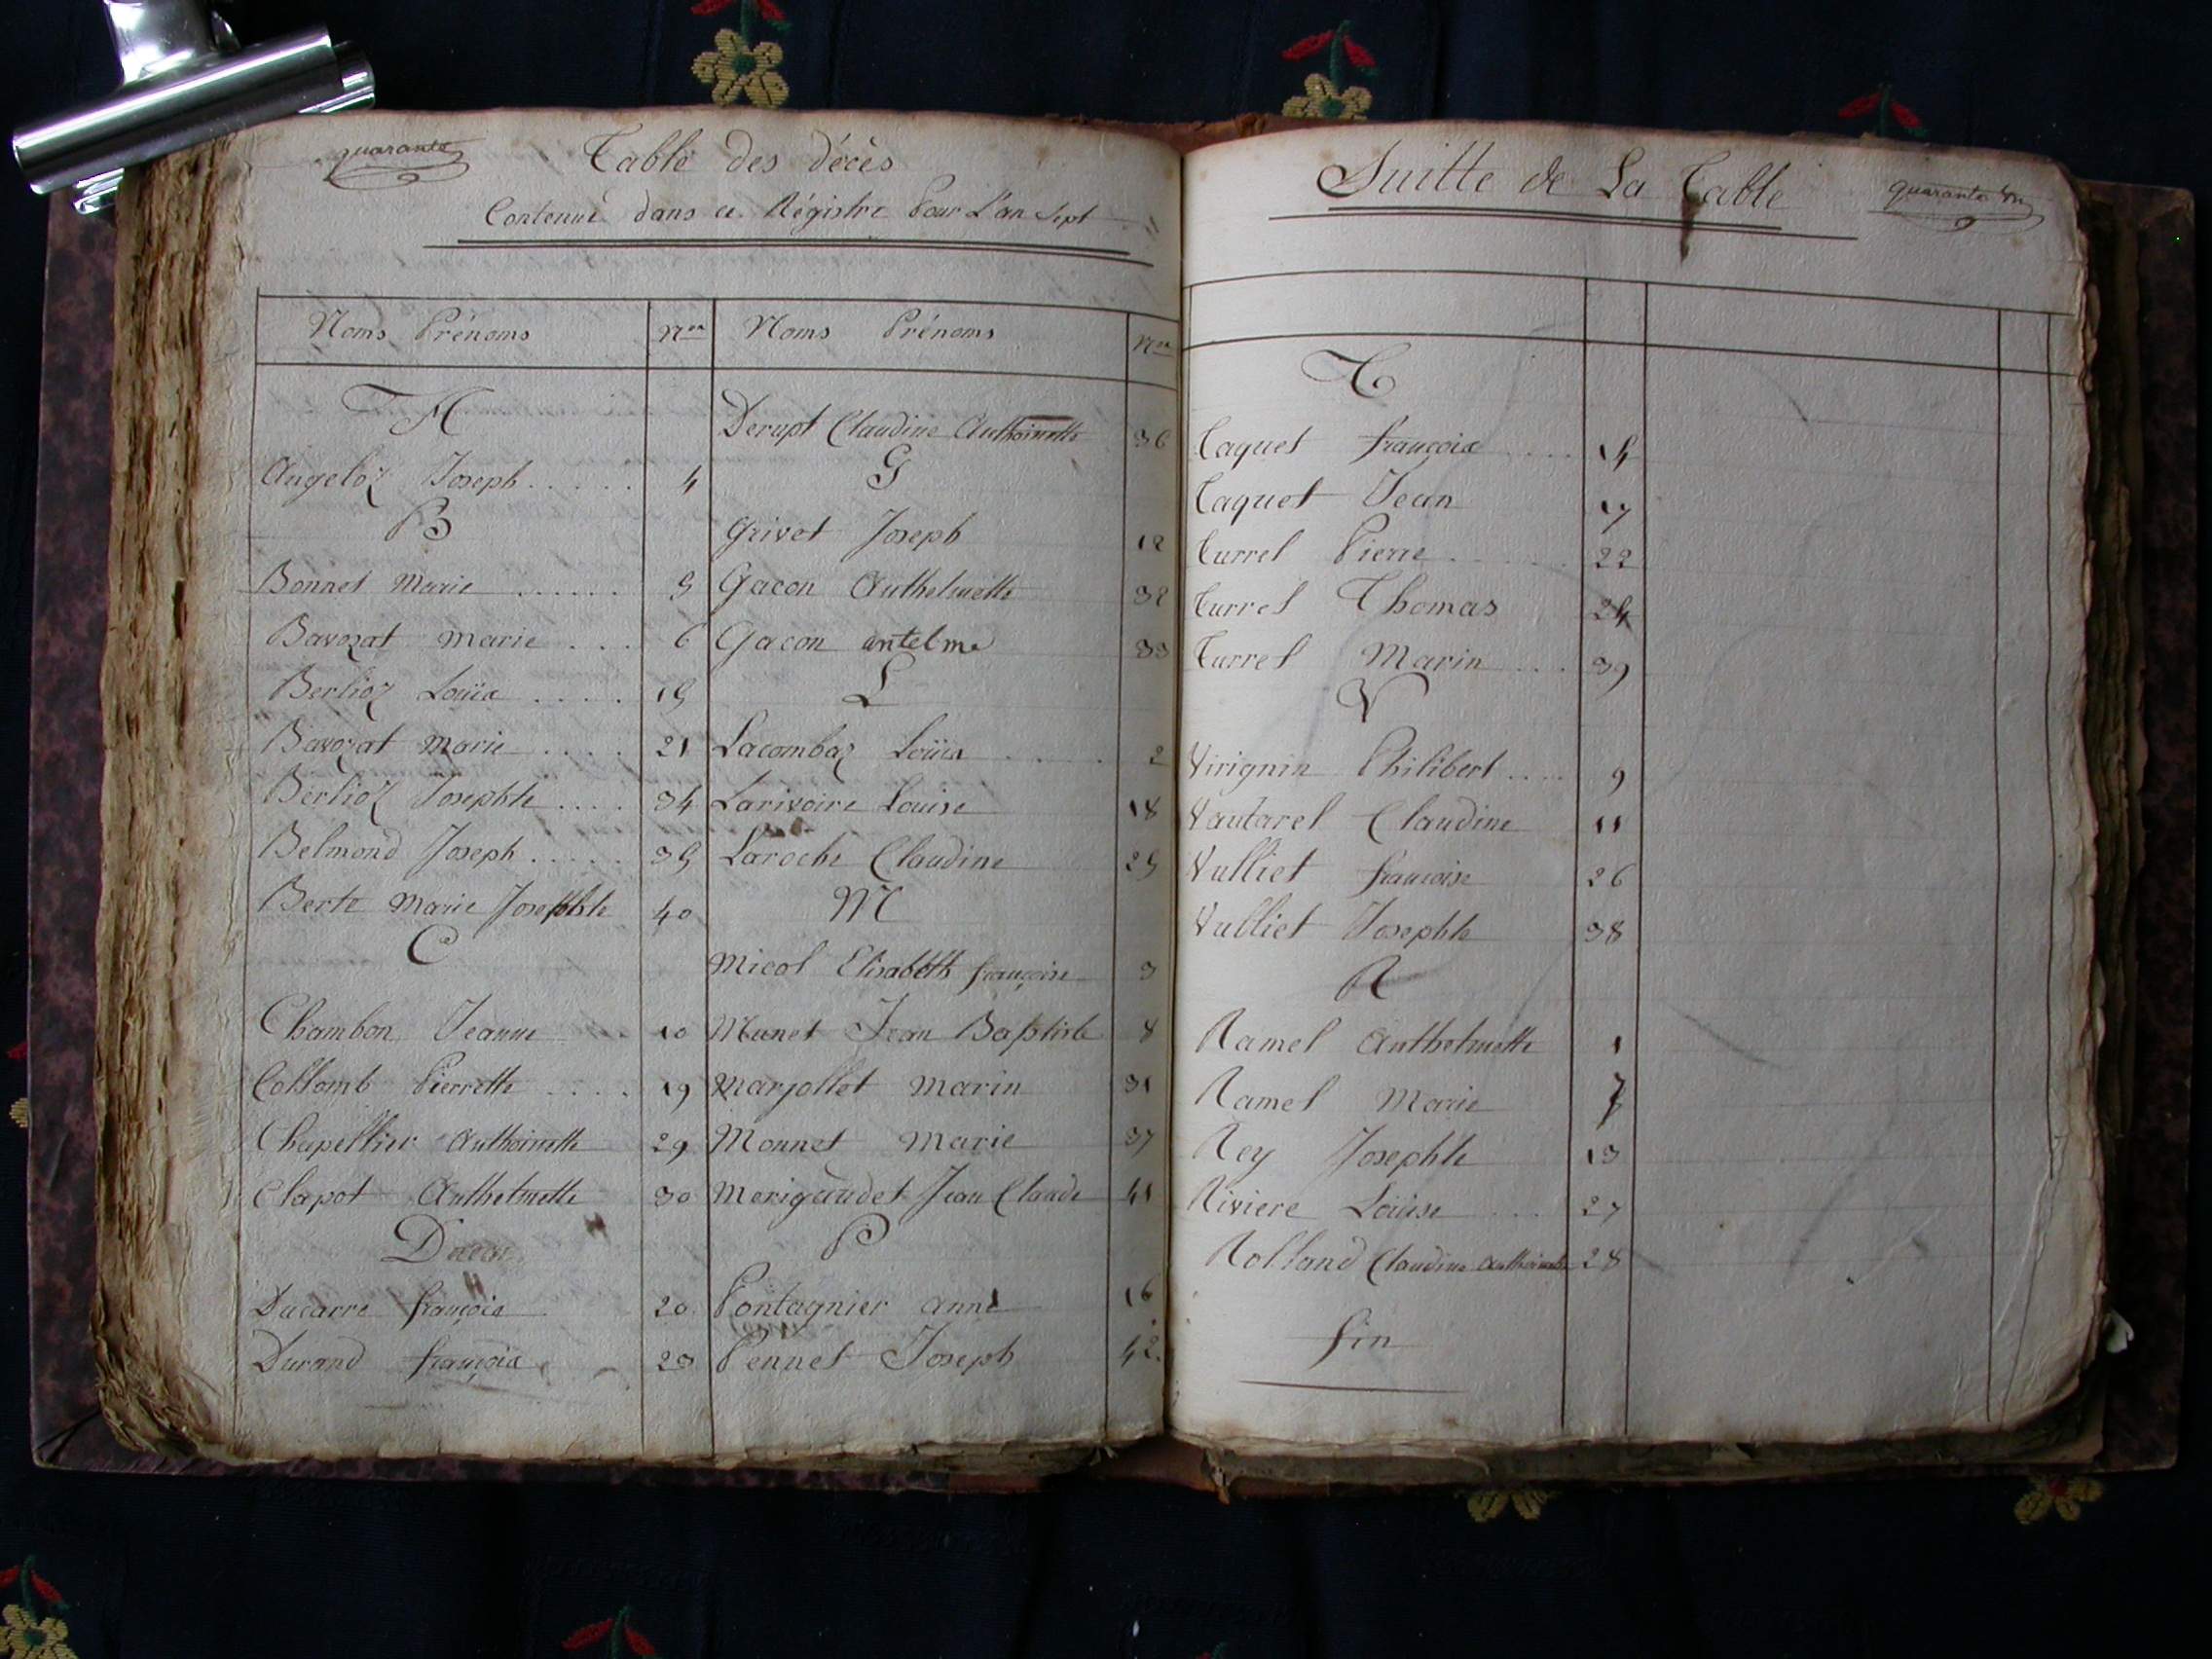 quarante
Table des décès
Contenue dans ce Régistre Pour L'an Sept
Noms Prénoms
Nos
A
Angeloz Joseph ..... 4
B
Bonnet Marie ...... 5
Bavozat marie ... 6
Berlioz Loüis .... 15
Bavozat Marie .... 21
Berlioz Josephte .... 34
Belmond Joseph ..... 35
Berte Marie Josephte 40
C
Chambon Jeanne 10
Collomb Pierrette .... 19
Chapellier Anthoinette 29
Clapot Anthelmette 30
D
Ducarre françois 20
Durand françois 23
Noms Prénoms
Nos
Derupt Claudine Anthoinette 36
G
Grivet Joseph 12
Gacon Anthelmette 32
Gacon antelme 33
L
Lacombaz Loüis ...... 2
Larivoire Louise 18
Laroche Claudine 25
M
Micol Elisabeth françoise 3
Munet Jean Baptiste 8
Marjollet Marin 31
Monnet Marie 37
Merigaudet Jean Claude 41
P
Pontagnier anne 16
Pennet Joseph 42.
Suitte de La Table
quarante un
T
Taquet françois .... 14
Taquet Jean 17
Turrel Pierre ...... 22
Turrel Thomas 24
Turrel Marin ... 39
V
Virignin Philibert .... 9
Vautarel Claudine 11
Vulliet françoise 26
Vulliet Josephte 38
R
Ramel Anthelmette 1
Ramel Marie 7
Rey Josephte 13
Riviere Loüise ... 27
Rolland Claudine Anthoinette 28
fin